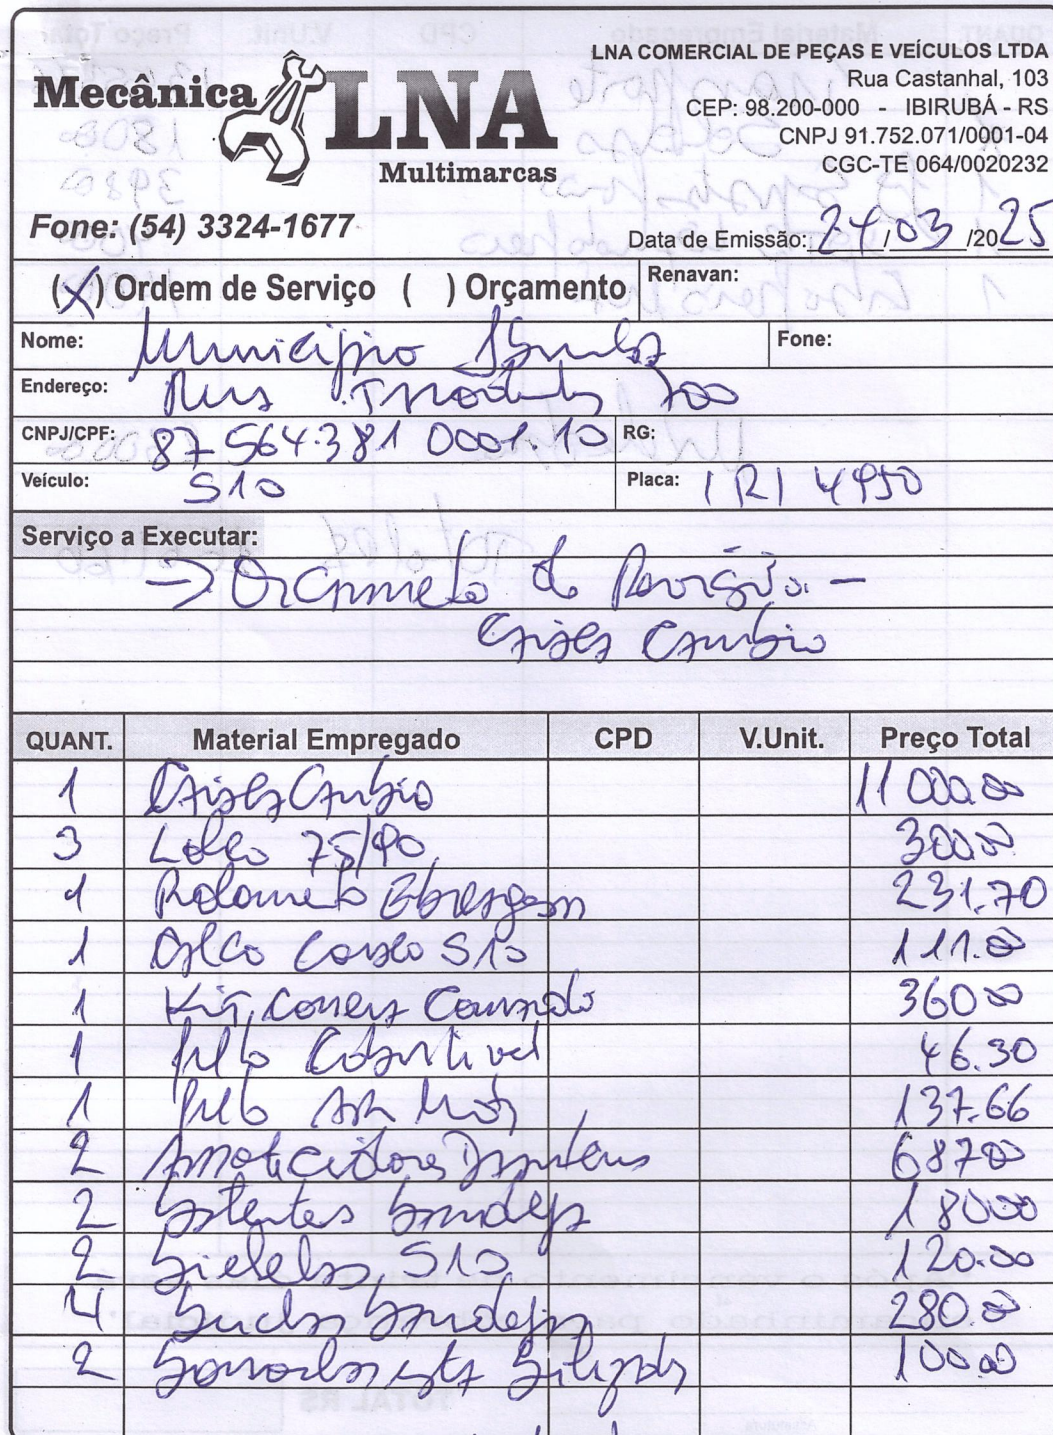 LNA COMERCIAL DE PEÇAS E VEÍCULOS LTDA
Rua Castanhal, 103
CEP: 98.200-000 - IBIRUBÁ - RS
CNPJ 91.752.071/0001-04
CGC-TE 064/0020232
Mecânica LNA
Multimarcas
Fone: (54) 3324-1677
Data de Emissão: 24/03/2025
(X) Ordem de Serviço ( ) Orçamento Renavan:
Nome: Município Ibirubá Fone:
Endereço: Rua Tiradentes 700
CNPJ/CPF: 87 564.381 0001.10 RG:
Veículo: S10 Placa: IRI 4950
Serviço a Executar:
→ Orçamento de Revisão -
Caixa Cambio
QUANT. Material Empregado CPD V.Unit. Preço Total
1 Caixa Cambio 11000.00
3 75/90 300.00
1 Rolamento Embreagem 231.70
1 S10 111.00
1 Kit Correia Comando 360.00
1 Filtro Combustivel 46.30
1 Filtro Ar 137.66
2 Amortecedores Dianteiros 687.00
2 Batentes Bandeja 180.00
2 Bieletas S10 120.00
4 Buchas Bandeja 280.00
2 Borrachas 100.00